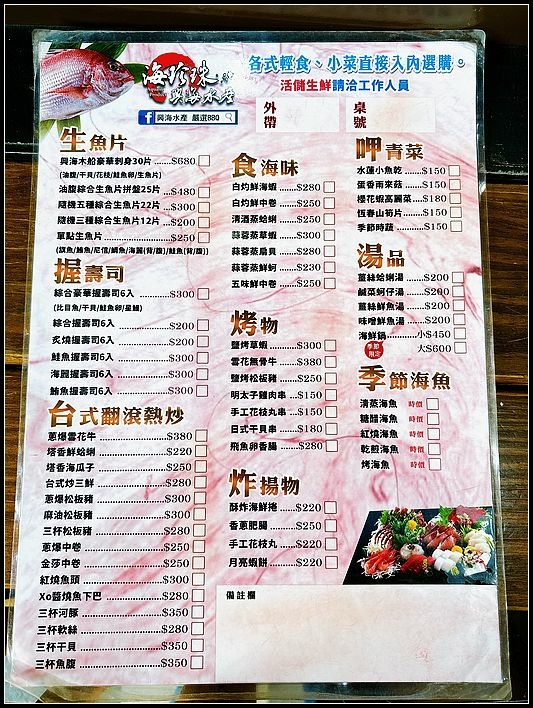 海珍珠
興海水産
興海水產 嚴選BBQ
各式輕食、小菜直接入內選購。
活儲生鮮請洽工作人員
外帶
桌號
生魚片
興海木船豪華刺身30片 ......$680
(油腹/干貝/花枝/鮭魚卵/生魚片)
油腹綜合生魚片拼盤25片 ...$480
隨機五種綜合生魚片22片 ...$300
隨機三種綜合生魚片12片 ...$200
單點生魚片 ......$250
(旗魚/鮪魚/尼信/鯛魚/海鱺(背/腹)/鮭魚(背/腹))
握壽司
綜合豪華握壽司6入 ......$300
(比目魚/干貝/鮭魚卵/星鰻)
綜合握壽司6入 ......$200
炙燒握壽司6入 ......$200
鮭魚握壽司6入 ......$300
海鱺握壽司6入 ......$300
鮪魚握壽司6入 ......$300
台式翻滾熱炒
蔥爆雪花牛 ......$380
塔香鮮蛤蜊 ......$220
塔香海瓜子 ......$250
台式炒三鮮 ......$280
蔥爆松板豬 ......$300
麻油松板豬 ......$300
三杯松板豬 ......$280
蔥爆中卷 ......$250
金莎中卷 ......$250
紅燒魚頭 ......$300
Xo醬燒魚下巴 ......$280
三杯河豚 ......$350
三杯軟絲 ......$280
三杯干貝 ......$350
三杯魚腹 ......$350
食海味
白灼鮮海蝦 ......$280
白灼鮮中卷 ......$250
清酒蒸蛤蜊 ......$250
蒜蓉蒸草蝦 ......$300
蒜蓉蒸扇貝 ......$280
蒜蓉蒸鮮蚵 ......$230
五味鮮中卷 ......$250
烤物
鹽烤草蝦 ......$300
雪花無骨牛 ......$380
鹽烤松板豬 ......$250
明太子雞肉串 ...$150
手工花枝丸串 ...$150
日式干貝串 ......$180
飛魚卵香腸 ......$280
炸揚物
酥炸海鮮捲 ......$220
香蔥肥腸 ......$250
手工花枝丸 ......$220
月亮蝦餅 ......$220
呷青菜
水蓮小魚乾 ......$150
蛋香雨來菇 ......$150
櫻花蝦高麗菜 ...$180
恆春山筍片 ......$150
季節時蔬 ......$150
湯品
薑絲蛤蜊湯 ......$200
鹹菜蚵仔湯 ......$200
薑絲鮮魚湯 ......$200
味噌鮮魚湯 ......$200
海鮮鍋 ......小$450
季節限定
大$600
季節海魚
清蒸海魚 時價
糖醋海魚 時價
紅燒海魚 時價
乾煎海魚 時價
烤海魚 時價
備註欄